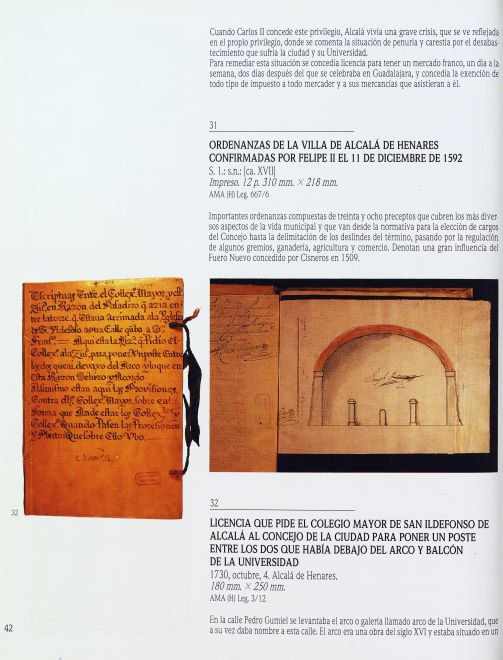 Cuando Carlos II concede este privilegio, Alcalá vivía una grave crisis, que se ve reflejada
en el propio privilegio, donde se comenta la situación de penuria y carestía por el desabas-
tecimiento que sufría la ciudad y su Universidad.
Para remediar esta situación se concedía licencia para tener un mercado franco, un día a la
semana, dos días después del que se celebraba en Guadalajara, y concedía la exención de
todo tipo de impuesto a todo mercader y a sus mercancias que asistieran a él.
31
ORDENANZAS DE LA VILLA DE ALCALÁ DE HENARES
CONFIRMADAS POR FELIPE II EL 11 DE DICIEMBRE DE 1592
S. l.: s.n.: [ca. XVII]
Impreso. 12 p. 310 mm. × 218 mm.
AMA (H) Leg. 667/6
Importantes ordenanzas compuestas de treinta y ocho preceptos que cubren los más diver-
sos aspectos de la vida municipal y que van desde la normativa para la elección de cargos
del Concejo hasta la delimitación de los deslindes del término, pasando por la regulación
de algunos gremios, ganadería, agricultura y comercio. Denotan una gran influencia del
Fuero Nuevo concedido por Cisneros en 1509.
Escripturas Entre el Collex.º Mayor, y est
en Razon del
tre latorre q. Estaua Arrimada ala
Calle
Aqui esta la q. Pidio El
Collex.º para poner Vn poste Entre
los dos que ai devaxo del Arco y lo que en
esta Razon
Asimismo estan aqui las Provisiones
Contra el Collex.º Mayor, sobre en
forma que
Quando Pasen las Procesiones
y Pleito Que sobre Ello Vbo
32
32
LICENCIA QUE PIDE EL COLEGIO MAYOR DE SAN ILDEFONSO DE
ALCALÁ AL CONCEJO DE LA CIUDAD PARA PONER UN POSTE
ENTRE LOS DOS QUE HABÍA DEBAJO DEL ARCO Y BALCÓN
DE LA UNIVERSIDAD
1730, octubre, 4. Alcalá de Henares.
180 mm. × 250 mm.
AMA (H) Leg. 3/12
En la calle Pedro Gumiel se levantaba el arco o galería llamado arco de la Universidad, que
a su vez daba nombre a esta calle. El arco era una obra del siglo XVI y estaba situado en un
42